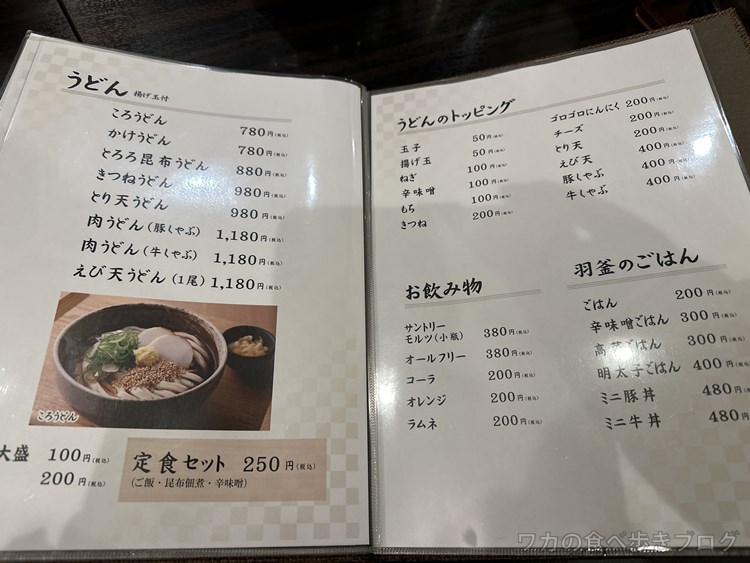 うどん 揚げ玉付
ころうどん 780円(税込)
かけうどん 780円(税込)
とろろ昆布うどん 880円(税込)
きつねうどん 980円(税込)
とり天うどん 980円(税込)
肉うどん(豚しゃぶ) 1,180円(税込)
肉うどん(牛しゃぶ) 1,180円(税込)
えび天うどん(1尾) 1,180円(税込)
ころうどん
大盛 100円(税込)
200円(税込)
定食セット 250円(税込)
(ご飯・昆布佃煮・辛味噌)
うどんのトッピング
玉子 50円(税込)
揚げ玉 50円(税込)
ねぎ 100円(税込)
辛味噌 100円(税込)
もち 100円(税込)
きつね 200円(税込)
ゴロゴロにんにく 200円(税込)
チーズ 200円(税込)
とり天 200円(税込)
えび天 400円(税込)
豚しゃぶ 400円(税込)
牛しゃぶ 400円(税込)
お飲み物
サントリー
モルツ(小瓶) 380円(税込)
オールフリー 380円(税込)
コーラ 200円(税込)
オレンジ 200円(税込)
ラムネ 200円(税込)
羽釜のごはん
ごはん 200円(税込)
辛味噌ごはん 300円(税込)
高菜ごはん 300円(税込)
明太子ごはん 400円(税込)
ミニ豚丼 480円(税込)
ミニ牛丼 480円
ワカの食べ歩きブログ